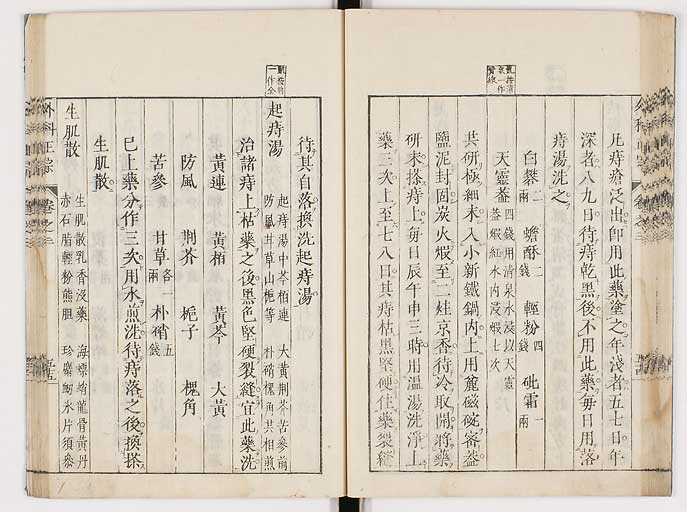 凡痔瘡泛出卽用此藥塗之年淺者五七日年
深者八九日待痔乾黑後不用此藥每日用落
痔湯洗之
白礬二兩 蟾酥二錢 輕粉四錢 砒霜一兩
天靈蓋四錢用清泉水浸以天靈
蓋煅紅水內浸煅七次
共研極細末入小新鐵鍋內上用麄磁碗密蓋
鹽泥封固炭火煅至二炷京香待冷取開將藥
研末搽痔上每日辰午申三時用溫湯洗淨上
藥三次上至七八日其痔枯黑堅硬住藥裂縫
待其自落換洗起痔湯
起痔湯 起痔湯中芩柏連 大黃荊芥苦參前
防風甘草山梔等 朴硝槐角共相煎
治諸痔上枯藥之後黑色堅硬裂縫宜此藥洗
黃連 黃栢 黃芩 大黃
防風 荊芥 梔子 槐角
苦參 甘草各一兩 朴硝五錢
已上藥分作三次用水煎洗待痔落之後換搽
生肌散
生肌散 生肌散乳香沒藥 海螵蛸龍骨黃丹
赤石脂輕粉熊胆 珍珠射氷片須參
外科正宗 卷之三